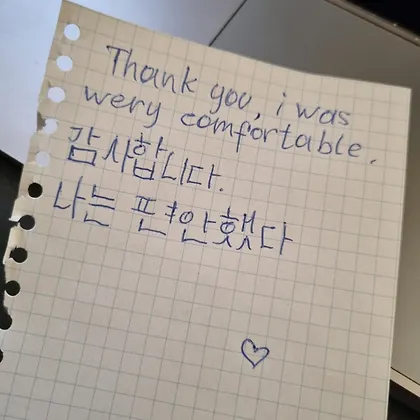 Thank you, i was
wery comfortable.
감사합니다.
나는 편안했다